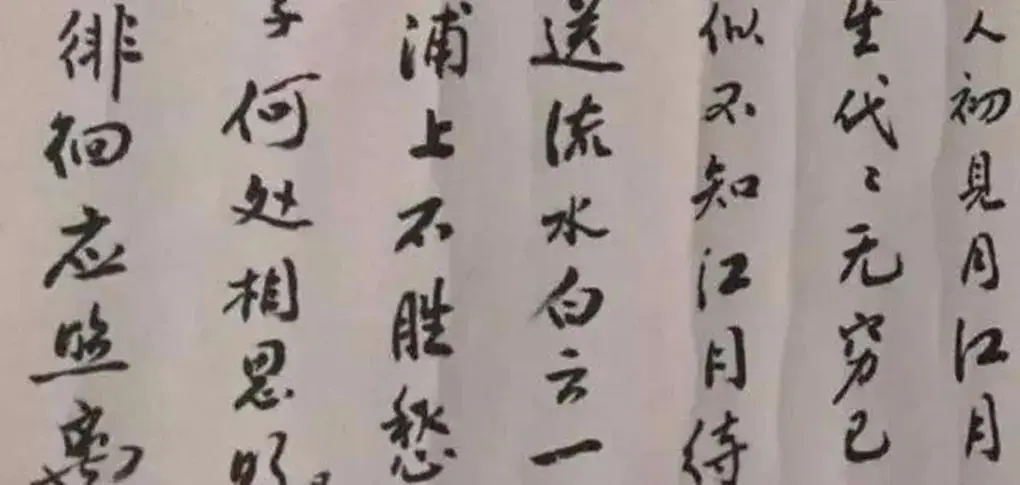 人初見月江月
生代〻无穷已
似不知江月待
送流水白云一
浦上不胜愁
子何处相思明
徘徊应照离